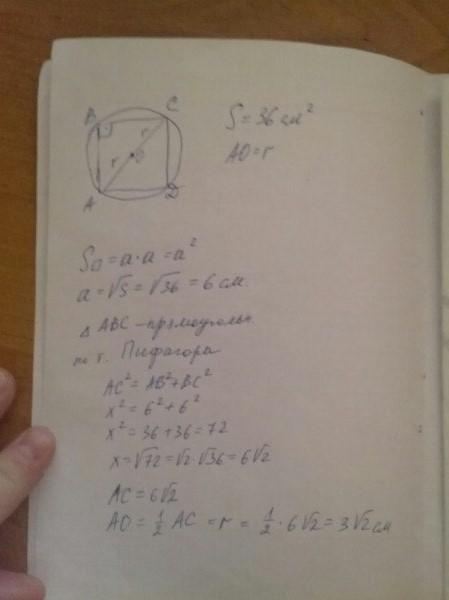 B C
r
r O
A D
S = 36 см²
AO = r
S□ = a · a = a²
a = √S = √36 = 6 см.
△ ABC – прямоугольн.
по т. Пифагора
AC² = AB² + BC²
x² = 6² + 6²
x² = 36 + 36 = 72
x = √72 = √2 · √36 = 6√2
AC = 6√2
AO = 1/2 AC = r = 1/2 · 6√2 = 3√2 см